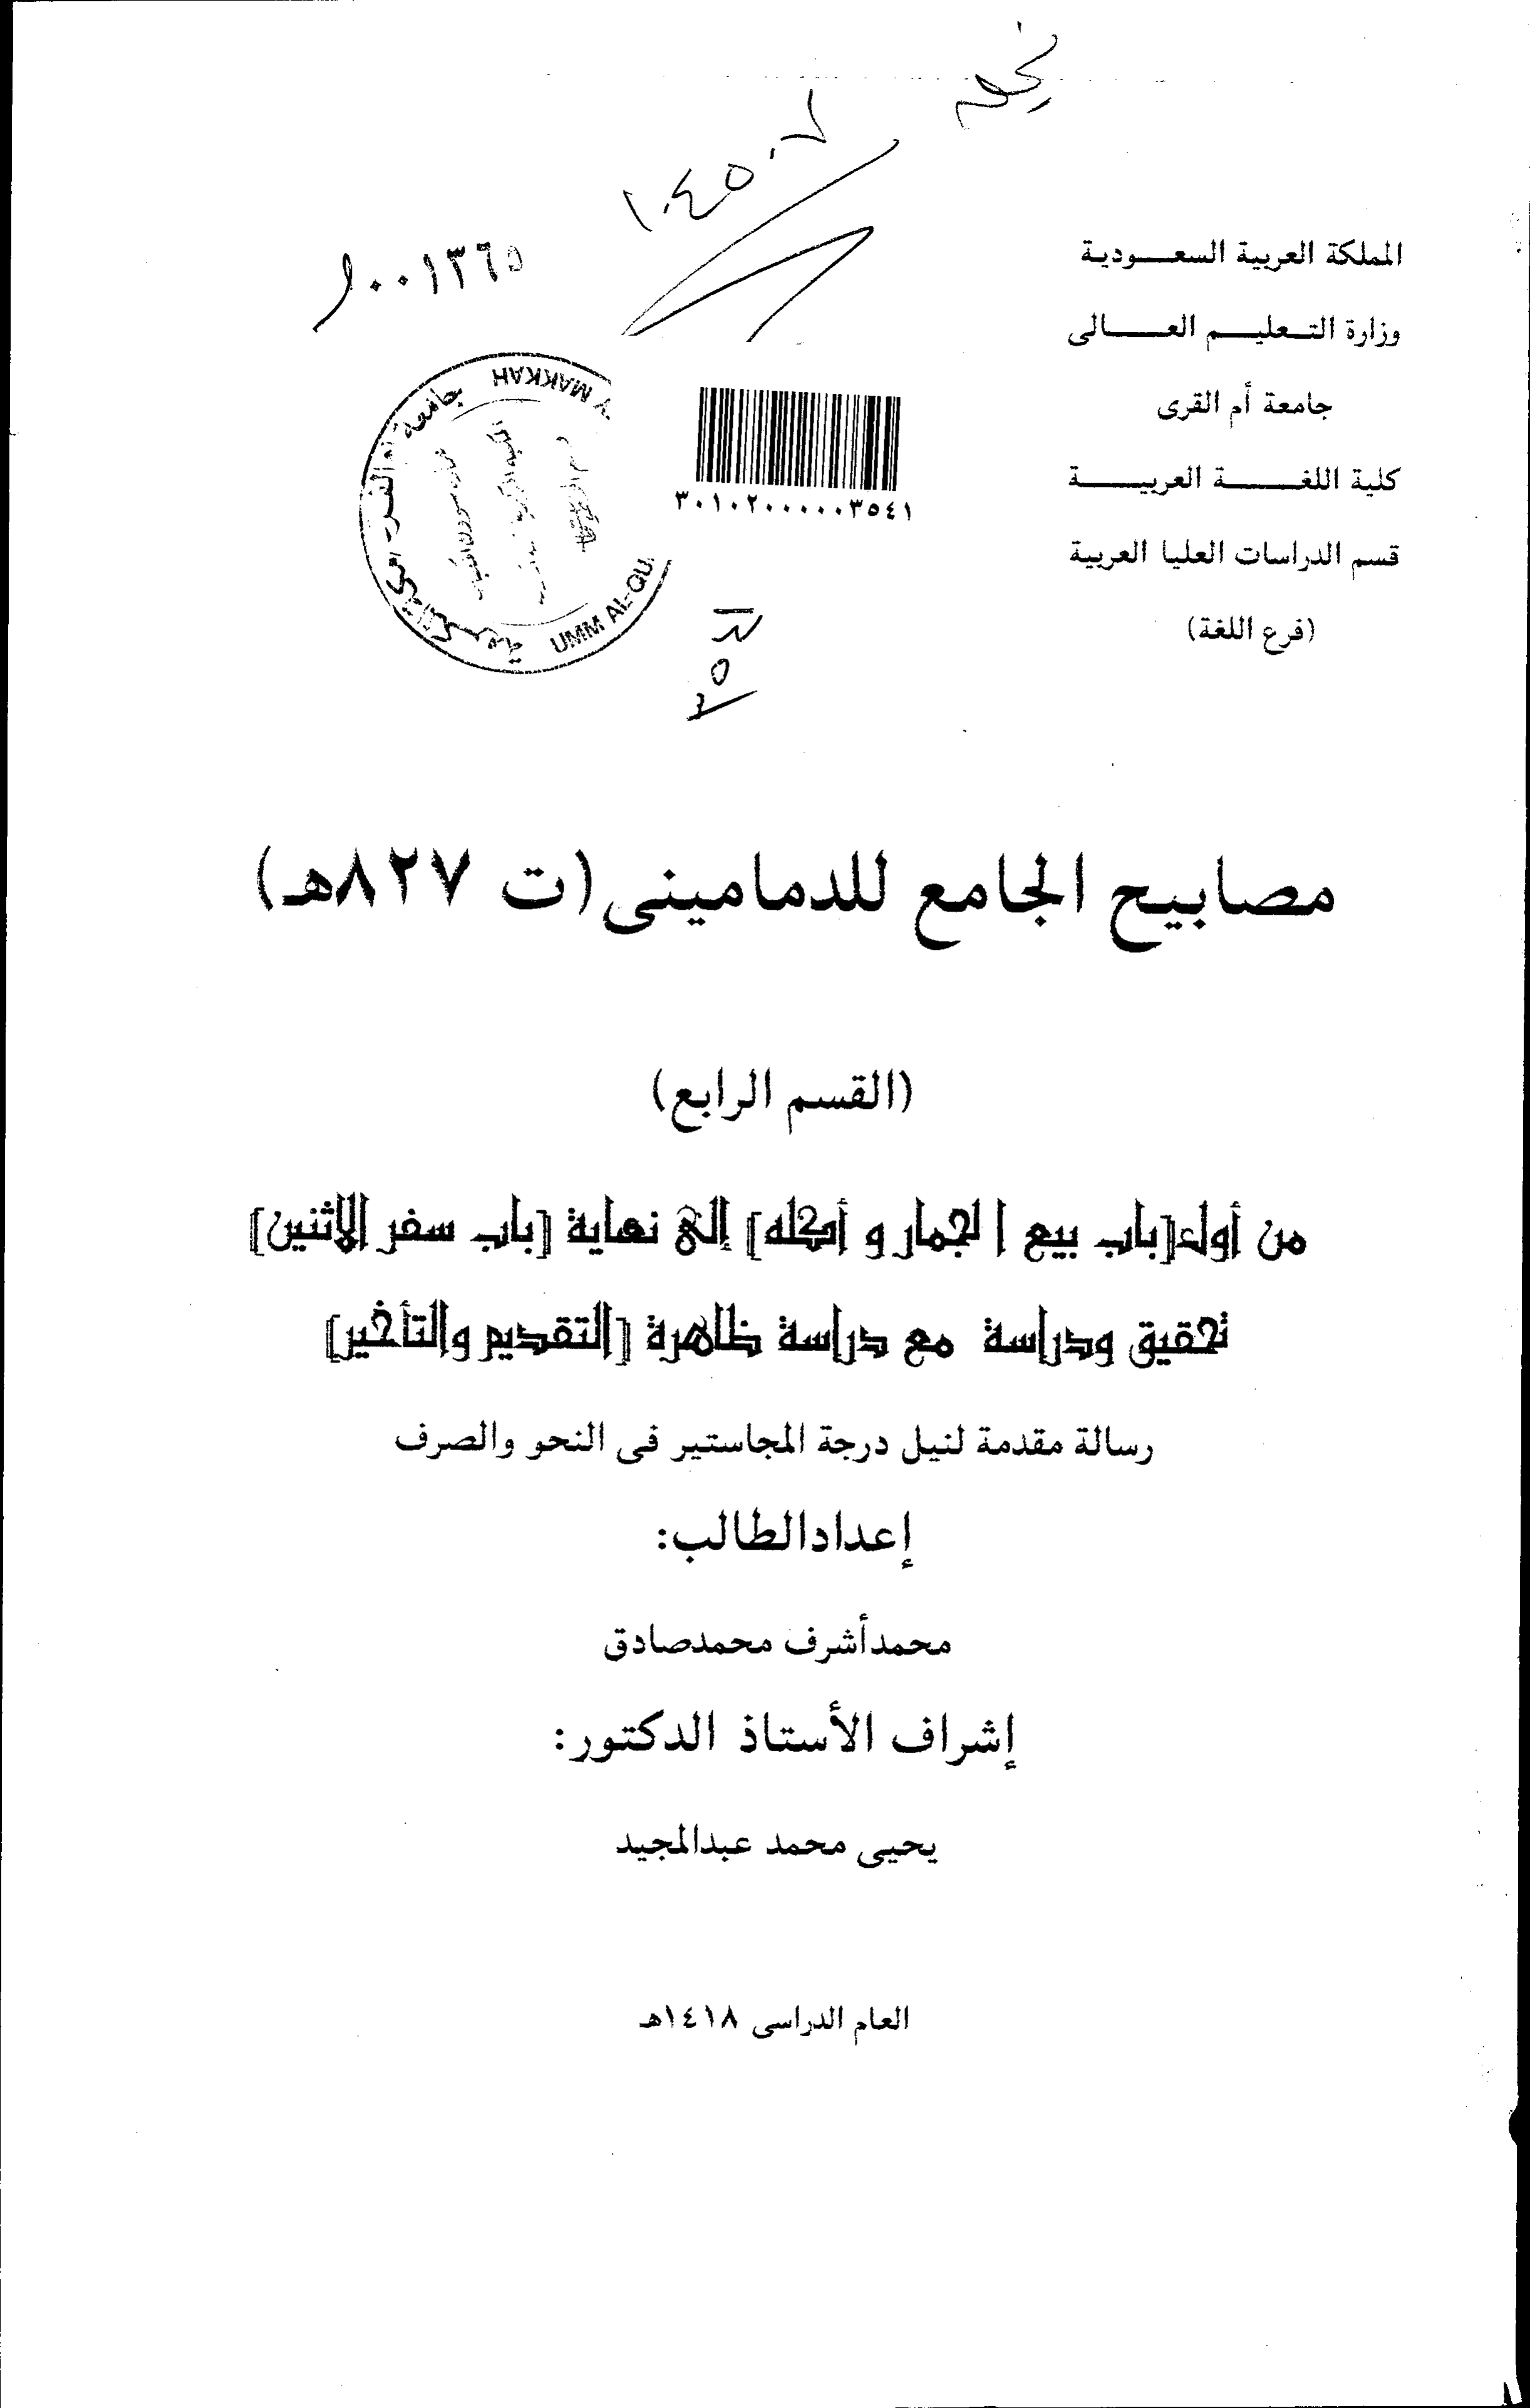 ١٠٤٥٠٦
٠٠١٣٦٥
المملكة العربية السعـــودية
وزارة التـعليـــم العــــالى
جامعة أم القرى
كلية اللغــــــة العربيــــــة
قسم الدراسات العليا العربية
(فرع اللغة)
جامعة
UMM AL-QU
Y MAKKAH
٣٠١٠٢٠٠٠٠٠٣٥٤١
مصابيح الجامع للدمامينى (ت ٨٢٧هـ)
(القسم الرابع)
من أول [باب بيع الجمار و أكله] إلى نهاية [باب سفر الاثنين]
تحقيق ودراسة مع دراسة ظاهرة [التقديم والتأخير]
رسالة مقدمة لنيل درجة المجاستير فى النحو والصرف
إعداد الطالب:
محمد أشرف محمد صادق
إشراف الأستاذ الدكتور:
يحيى محمد عبدالمجيد
العام الدراسى ١٤١٨هـ